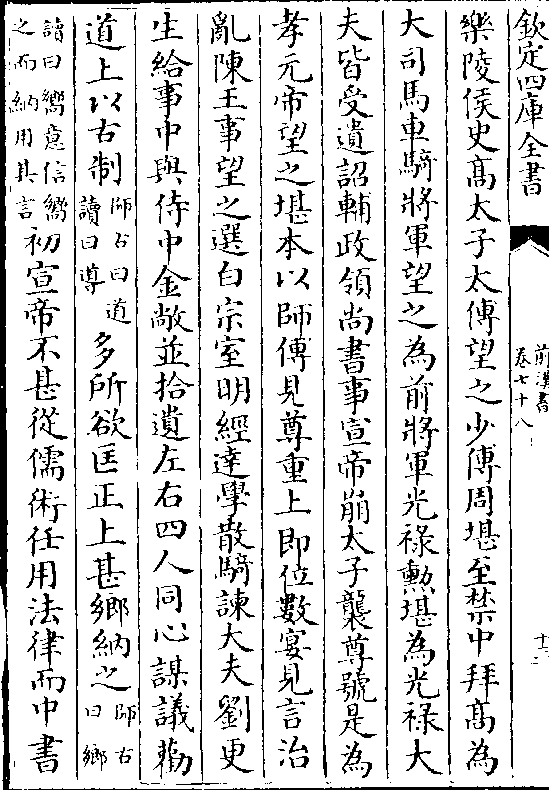 欽定四庫全書
前漢書
卷七十八
十二
樂陵侯史髙太子太傅望之少傅周堪至禁中拜髙為
大司馬車騎將軍望之為前將軍光祿勲堪為光祿大
夫皆受遺詔輔政領尚書事宣帝崩太子襲尊號是為
孝元帝望之堪本以師傅見尊重上即位數宴見言治
亂陳王事望之選白宗室明經達學散騎諫大夫劉更
生給事中與侍中金敞並拾遺左右四人同心謀議勸
道上以古制師古曰道讀曰導多所欲匡正上甚鄉納之師古曰鄉
讀曰嚮意信嚮之而納用其言初宣帝不甚從儒術任用法律而中書